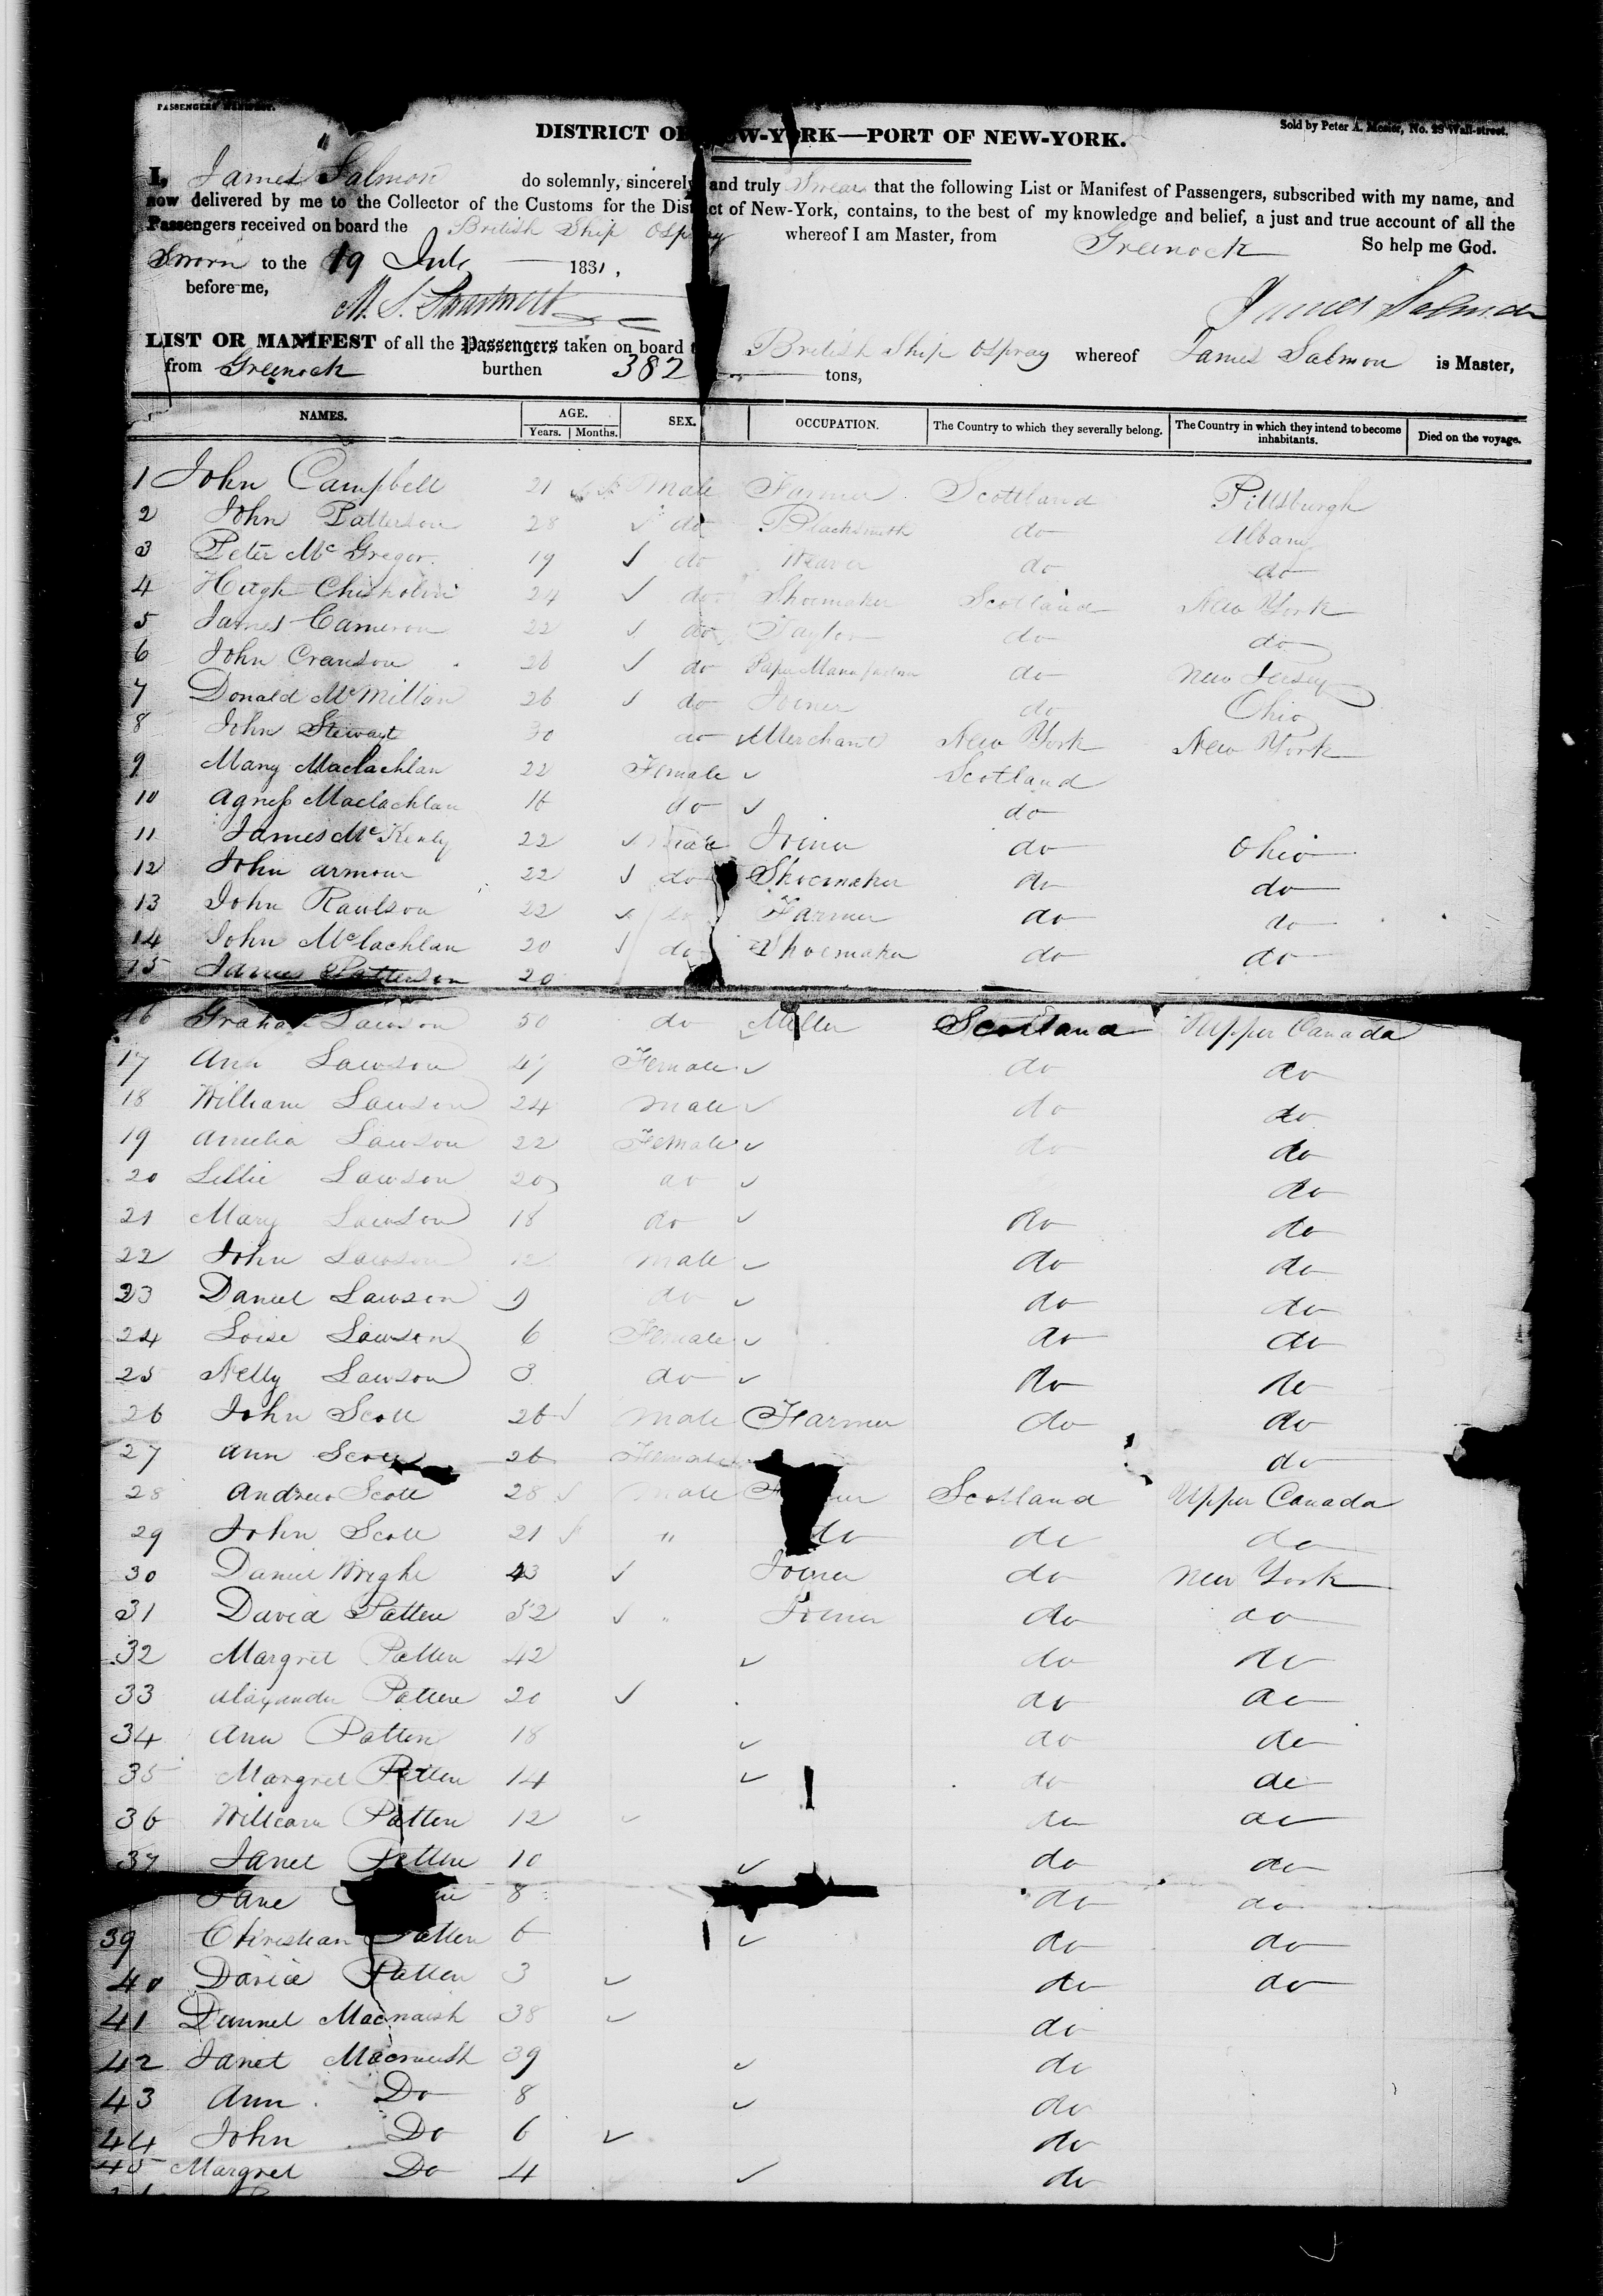 PASSENGERS' MANIFEST.
DISTRICT OF NEW-YORK—PORT OF NEW-YORK.
Sold by Peter A. Mesier, No. 28 Wall-street.
I, James Salmon do solemnly, sincerely and truly Swear that the following List or Manifest of Passengers, subscribed with my name, and
now delivered by me to the Collector of the Customs for the District of New-York, contains, to the best of my knowledge and belief, a just and true account of all the
Passengers received on board the British Ship Ospray whereof I am Master, from Greenock So help me God.
Sworn to the 19 July 1831,
before me,
James Salmon
LIST OR MANIFEST of all the Passengers taken on board t British Ship Ospray whereof James Salmon is Master,
from Greenock burthen 382 tons,
NAMES. AGE. SEX. OCCUPATION. The Country to which they severally belong. The Country in which they intend to become inhabitants. Died on the voyage.
Years. Months.
1 John Campbell 21 Male Farmer Scottland Pittsburgh
2 John Patterson 28 do Blacksmith do Albany
3 Peter McGregor 19 do Weaver do do
4 Hugh Chisholm 24 do Shoemaker Scotland New York
5 James Cameron 22 do Taylor do do
6 John Cranson 26 do Paper Manufacturer do New Jersey
7 Donald McMillan 26 do Joiner do Ohio
8 John Stewart 30 do Merchant New York New York
9 Mary Maclachlan 22 Female Scotland
10 Agness Maclachlan 16 do do
11 James Mc 22 Male Joiner do Ohio
12 John Armour 22 do Shoemaker do do
13 John Raulson 22 do Farmer do do
14 John Mclachlan 20 do Shoemaker do do
15 James Patterson 20
16 Graham Lawson 50 do Miller Scotland Upper Canada
17 Ann Lawson 47 Female do do
18 William Lawson 24 Male do do
19 Amelia Lawson 22 Female do do
20 Lillie Lawson 20 do do
21 Mary Lawson 18 do do do
22 John Lawson 12 Male do do
23 Daniel Lawson 9 do do do
24 Loise Lawson 6 Female do do
25 Nelly Lawson 3 do do do
26 John Scott 26 Male Farmer do do
27 Ann Scott 26 Female do
28 Andrew Scott 28 Male Farmer Scotland Upper Canada
29 John Scott 21 " do do do
30 Daniel Wright 43 Joiner do New York
31 David Patten 52 Joiner do do
32 Margret Patten 42 do do
33 Alaxander Patten 20 do do
34 Ann Patten 18 do do
35 Margret Patten 14 do do
36 William Patten 12 do do
37 Janet Patten 10 do do
Jane 8 do do
39 Christian Patten 6 do do
40 David Patten 3 do do
41 Dunnel Macnaish 38 do
42 Janet Macnaish 39 do
43 Ann Do 8 do
44 John Do 6 do
45 Margret Do 4 do